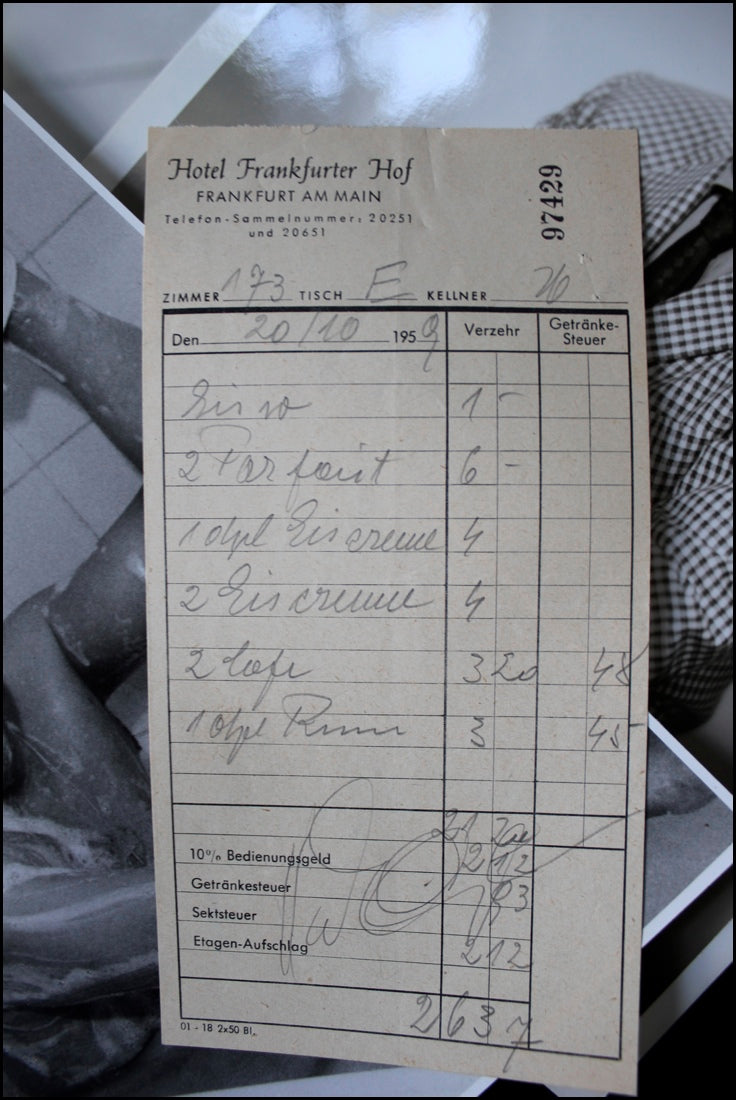 Hotel Frankfurter Hof
FRANKFURT AM MAIN
Telefon-Sammelnummer: 20251
und 20651
97429
ZIMMER 173 TISCH E KELLNER
Den 20/10 1959 Verzehr Getränke-Steuer
1 -
2 Parfait 6 -
1 dpl Eiscreme 4
2 Eiscreme 4
2 Cafe 3 20 48
1 dpl Rum 3 45
21 20
10% Bedienungsgeld 2 12
Getränkesteuer 93
Sektsteuer
Etagen-Aufschlag 2 12
26 37
01 - 18 2x50 Bl.